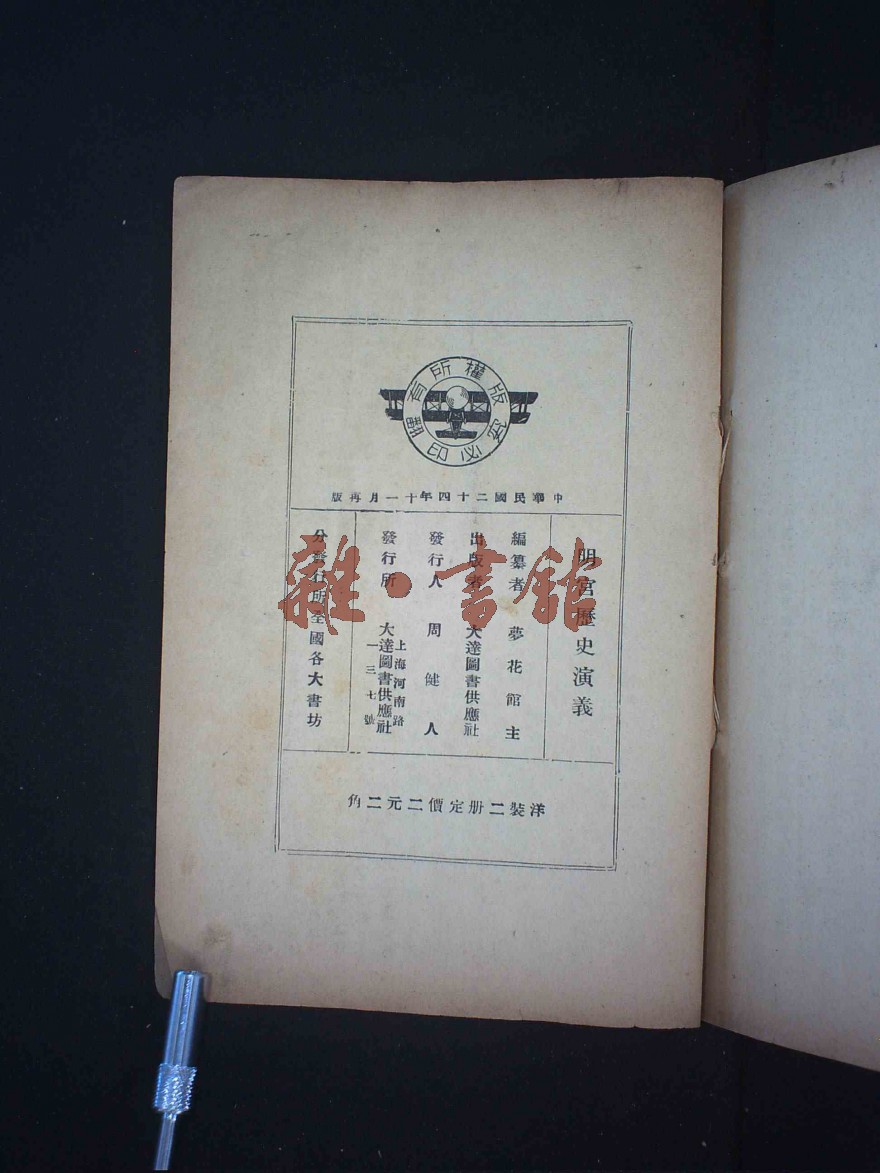 版權所有
翻印必究
中華民國二十四年十一月再版
明宮歷史演義
編纂者 夢花館主
出版者 大達圖書供應社
發行人 周健人
發行所 大達圖書供應社
上海河南路
一三七號
分發行所全國各大書坊
洋裝二册定價二元二角
雜·書館